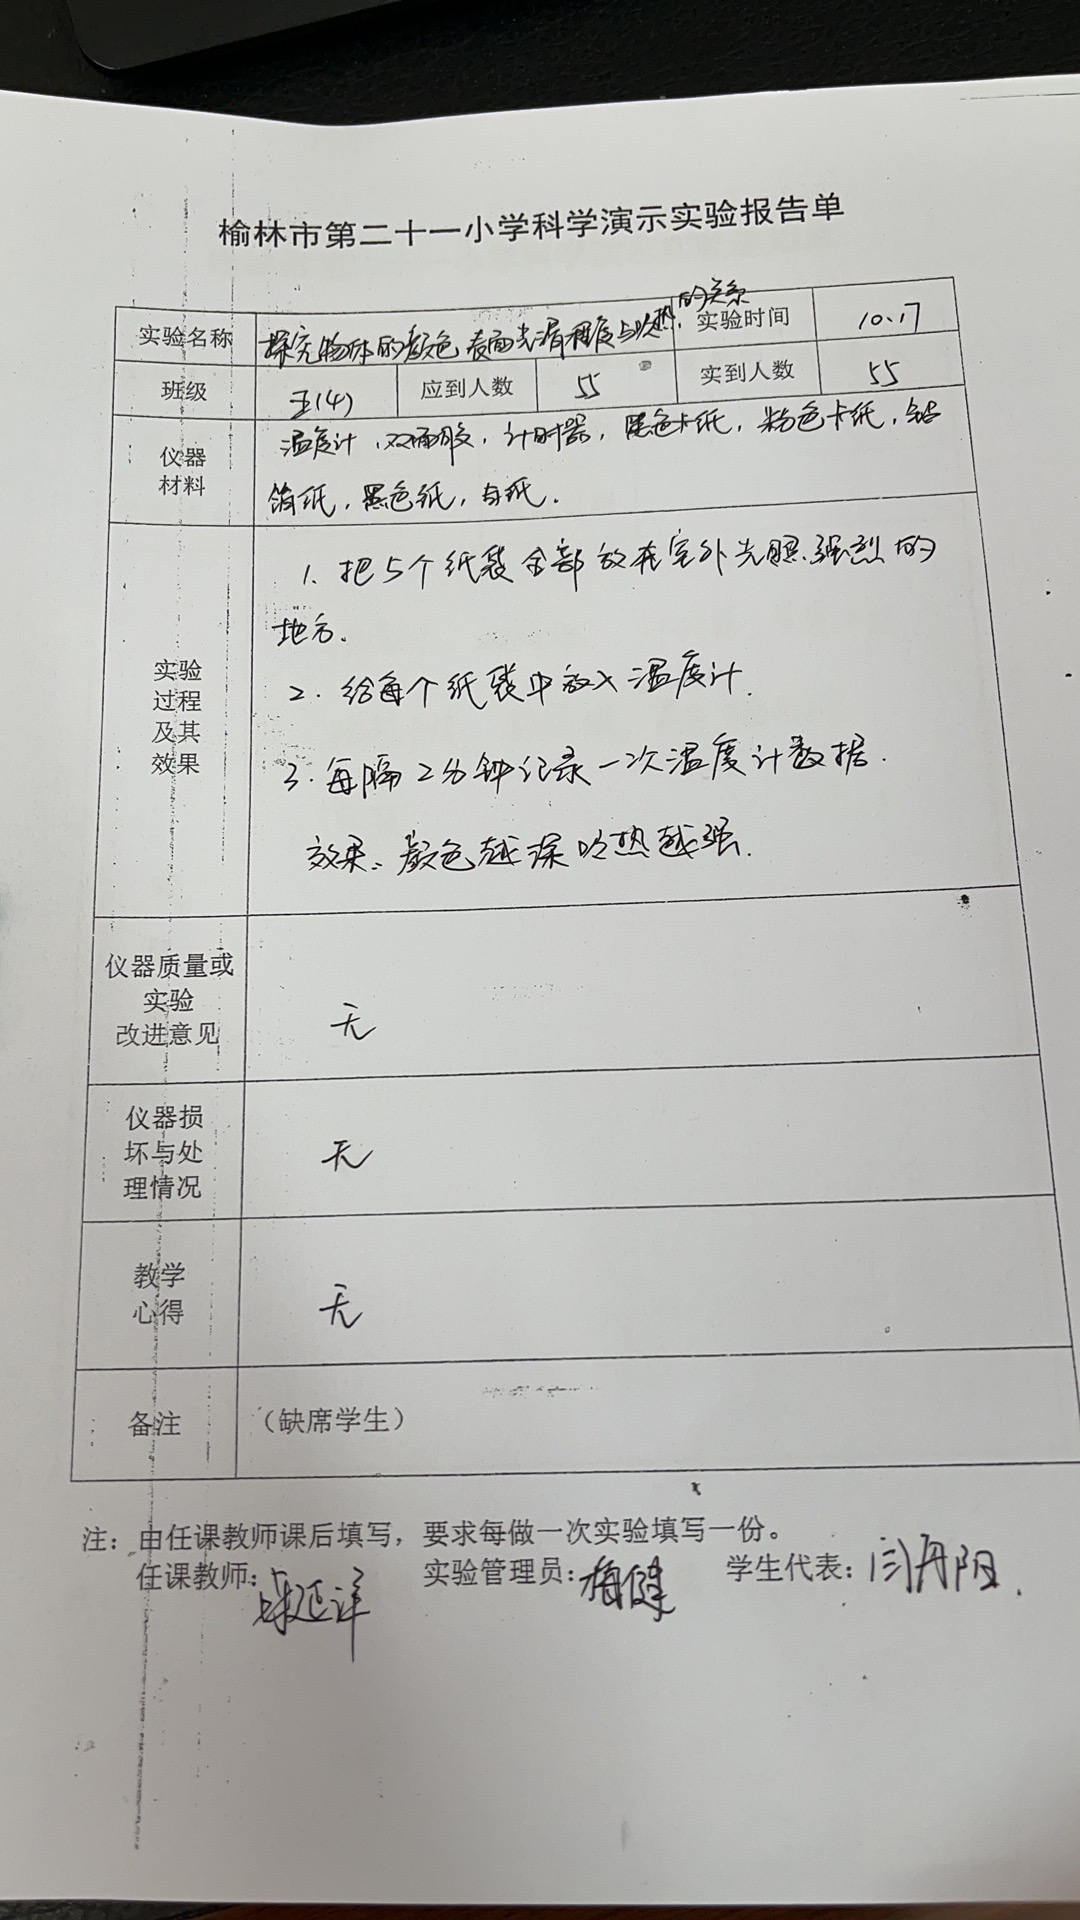 榆林市第二十一小学科学演示实验报告单
实验名称 探究物体的颜色表面光滑程度与吸热的关系 实验时间 10.17
班级 五(4) 应到人数 55 实到人数 55
仪器
材料
温度计，双面胶，计时器，黑色卡纸，粉色卡纸，铝
箔纸，黑色纸，白纸.
实验
过程
及其
效果
1. 把5个纸袋全部放在室外光照强烈的
地方.
2. 给每个纸袋中放入温度计.
3. 每隔2分钟记录一次温度计数据.
效果：颜色越深吸热越强.
仪器质量或
实验
改进意见
无
仪器损
坏与处
理情况
无
教学
心得
无
备注 （缺席学生）
注：由任课教师课后填写，要求每做一次实验填写一份。
任课教师： 实验管理员：梅健 学生代表：闫丹阳.